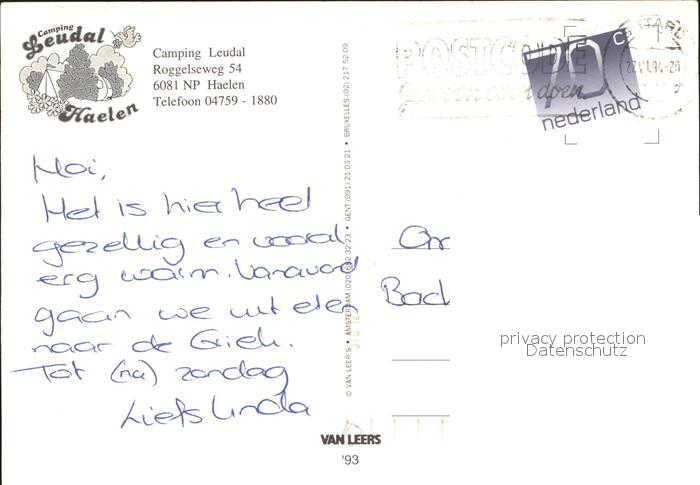 Camping
Leudal
Haelen
Camping Leudal
Roggelseweg 54
6081 NP Haelen
Telefoon 04759 - 1880
POSTCODE
gewoon even doen
70 c
nederland
Hoi,
Het is hier heel
gezellig en vooral
erg warm. Vanavond
gaan we uit eten
naar de Griek.
Tot (na) zondag
Liefs Linda
© VAN LEER'S • AMSTERDAM (020) 632 32 23 • GENT (091) 21 03 21 • BRUXELLES (02) 217 52 09
Om
Bad
privacy protection
Datenschutz
VAN LEERS
'93